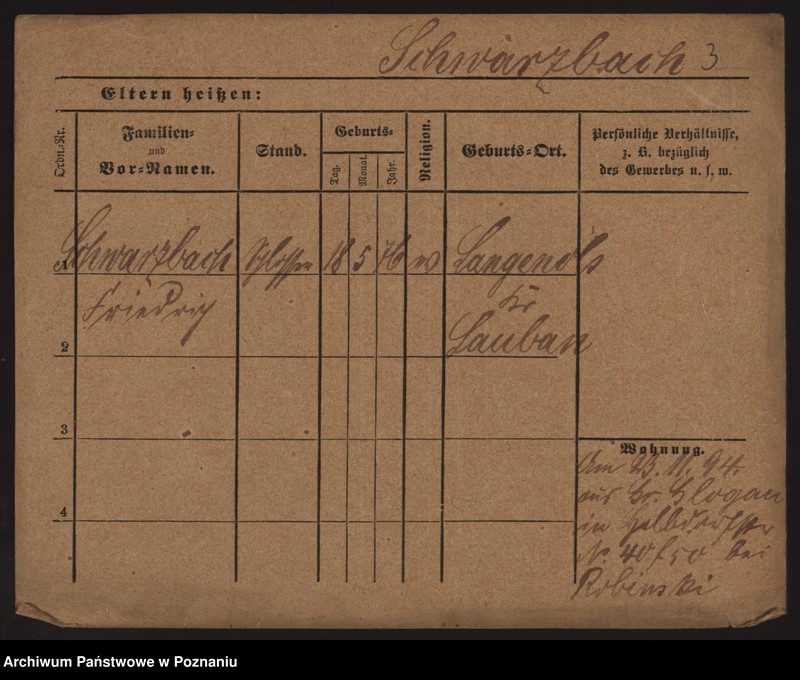 Schwarzbach 3
Eltern heißen:
Ordn.-Nr.
Familien-
und
Vor-Namen.
Stand.
Geburts-
Tag.
Monat.
Jahr.
Religion.
Geburts-Ort.
Persönliche Verhältnisse,
z. B. bezüglich
des Gewerbes u. s. w.
1 Schwarzbach Schlosser 18 5 76 ev Langenöls
Friedrich Kr
2 Lauban
3
Wohnung.
Am 23. 11. 94.
aus Gr. Glogau
4 in Halbdorfstr
No 40 bei
Robinski
Archiwum Państwowe w Poznaniu